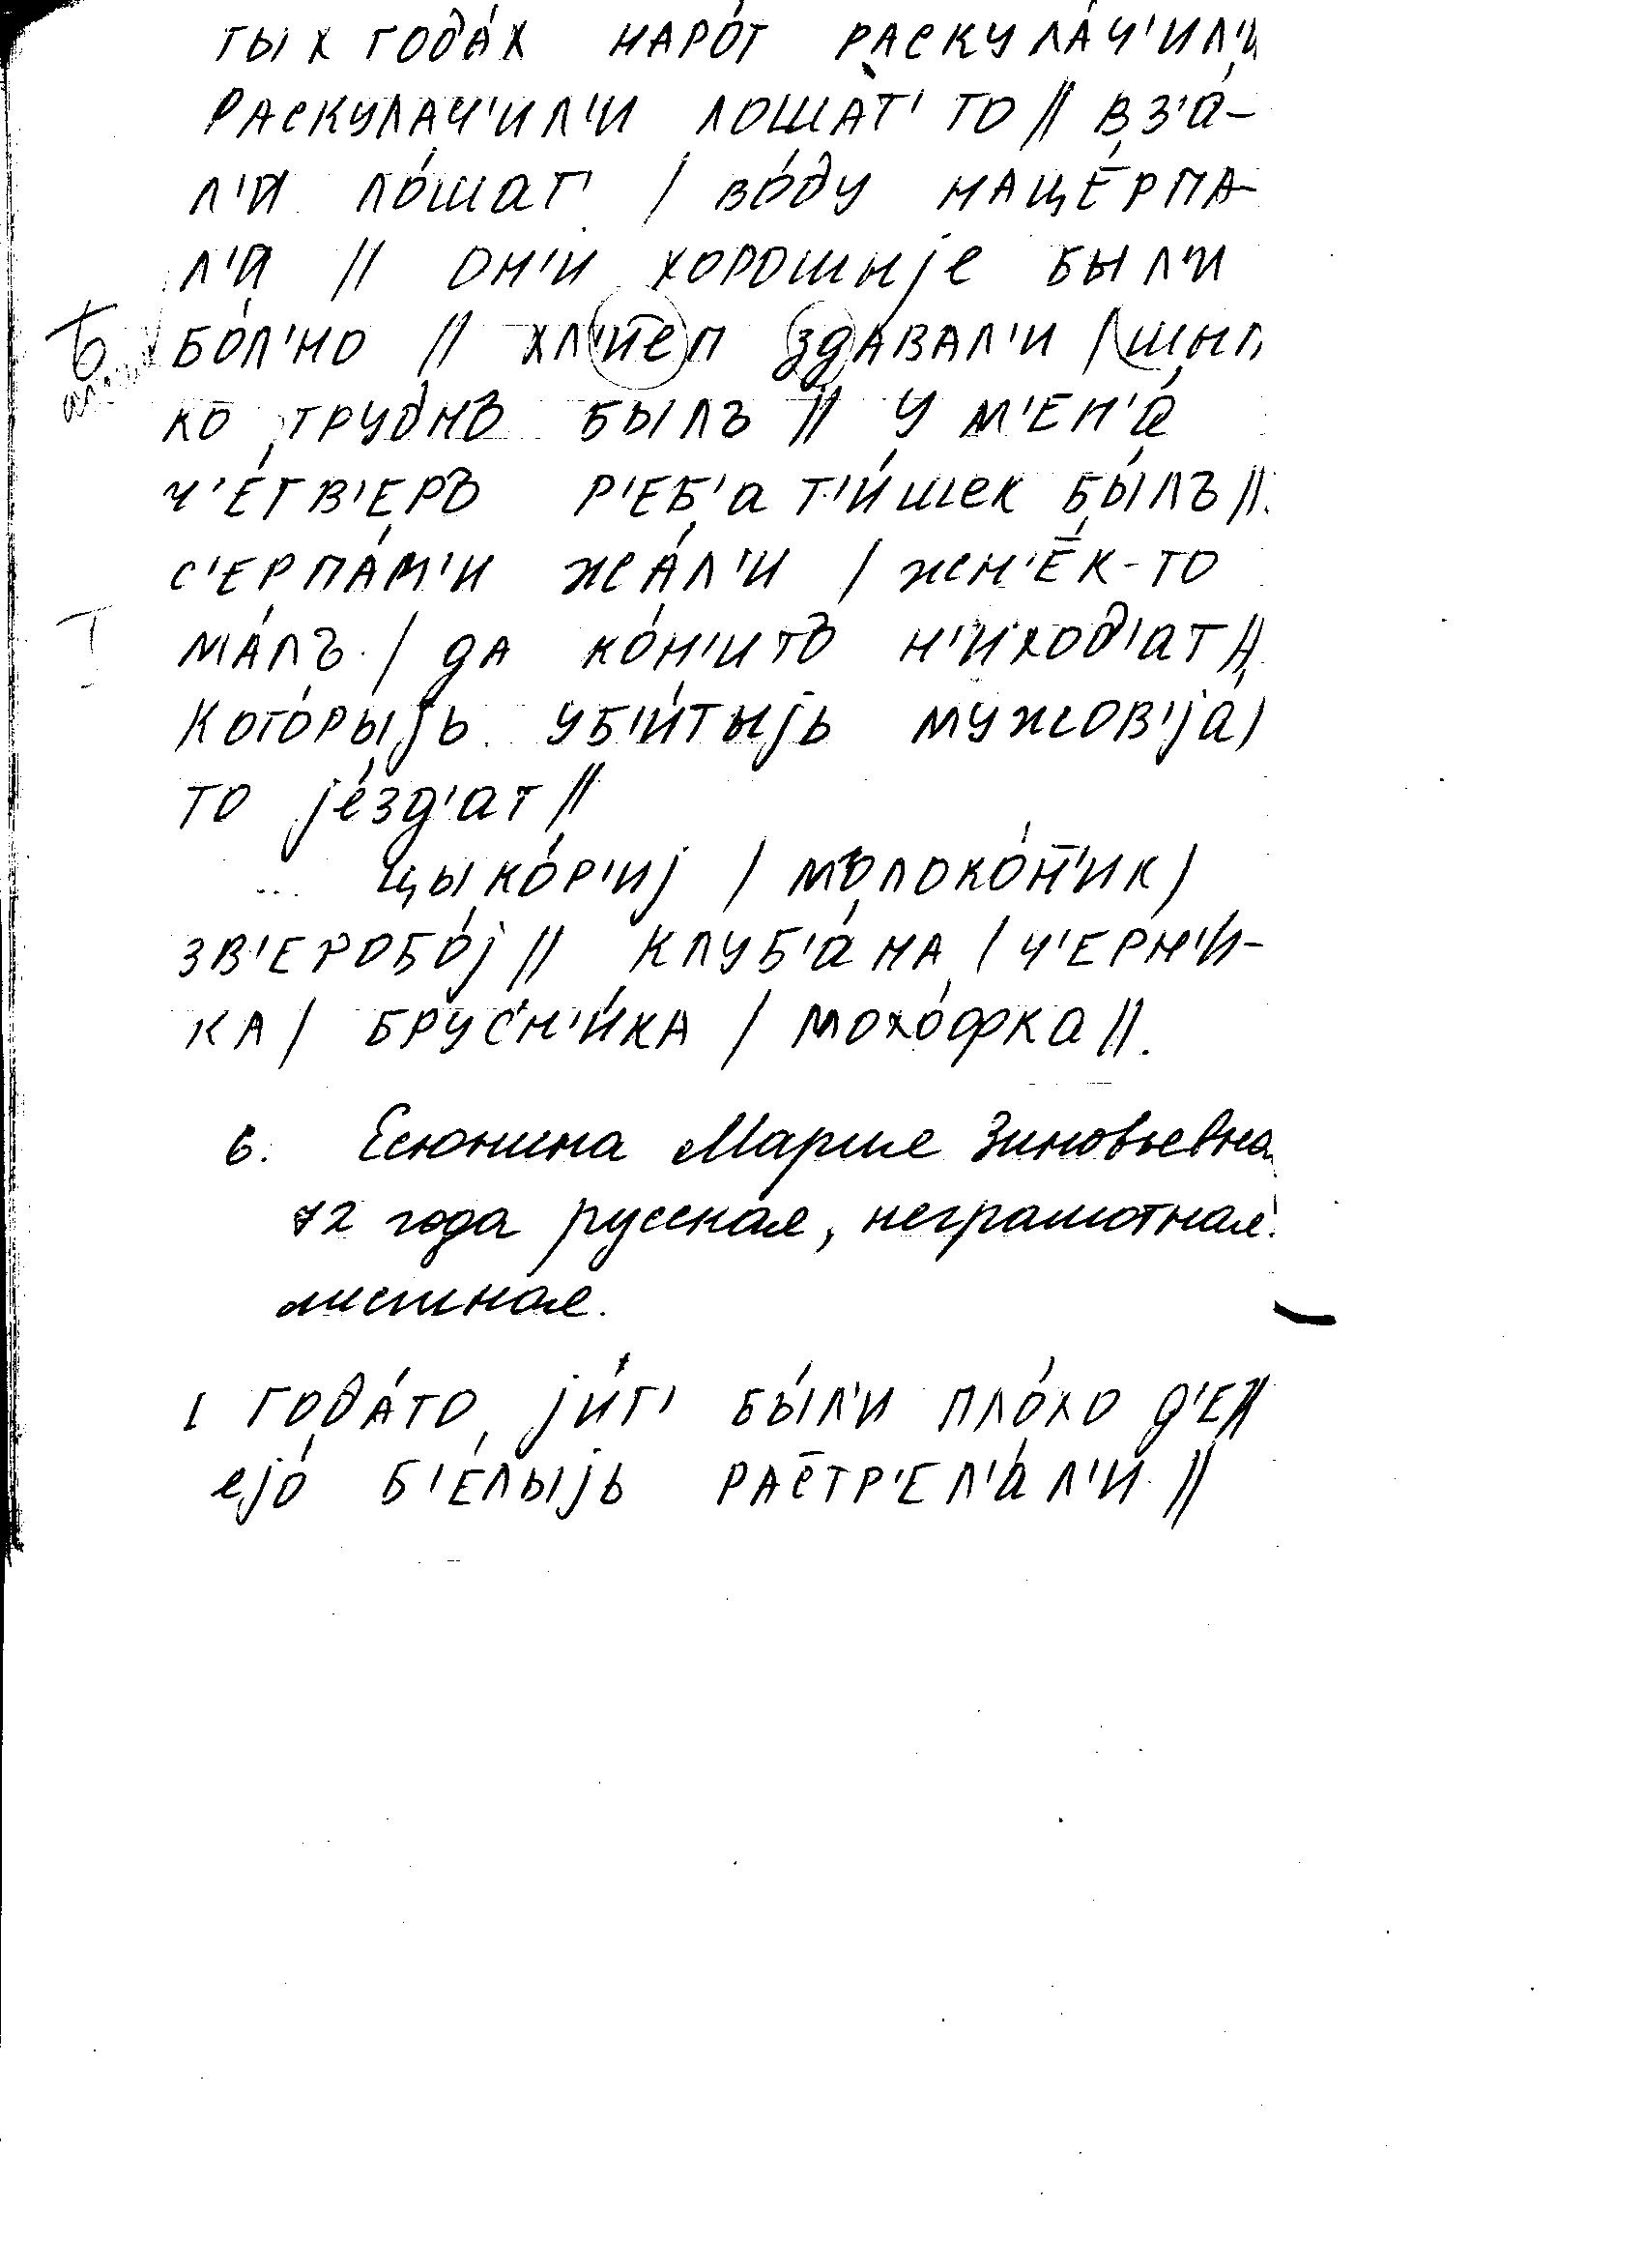 тых года́х наро́т раскула́ч'ил'и
раскулач'ил'и лошат' то // вз'а́-
л'и ло́шат' / во́ду наце́рпа-
л'и // он'и хорошыjе был'и
бо́л'но // хл'иеп здавал'и / шып
ко труднъ былъ // у м'ен'а́
ч'е́тв'еръ р'еб'ат'и́шек бы́лъ //
с'ерпа́м'и жа́л'и / жн'е́к-то
ма́лъ / да ко́н'итъ н'иход'ат //
кото́рыjь уб'и́тыjь мужов'jа́ /
то jе́зд'ат //
... цыко́р'иj / мълоко́н̄'ик /
зв'еробо́j // клуб'а́на / ч'ерн'и́-
ка / брус'н'и́ка / мохо́фка //.
6. Есюнина Мария Зиновьевна
72 года русская, неграмотная
местная.
года́то jи́т' бы́л'и пло́хо д'е //
еjо́ б'е́лыjь растр'ел'а́л'и //